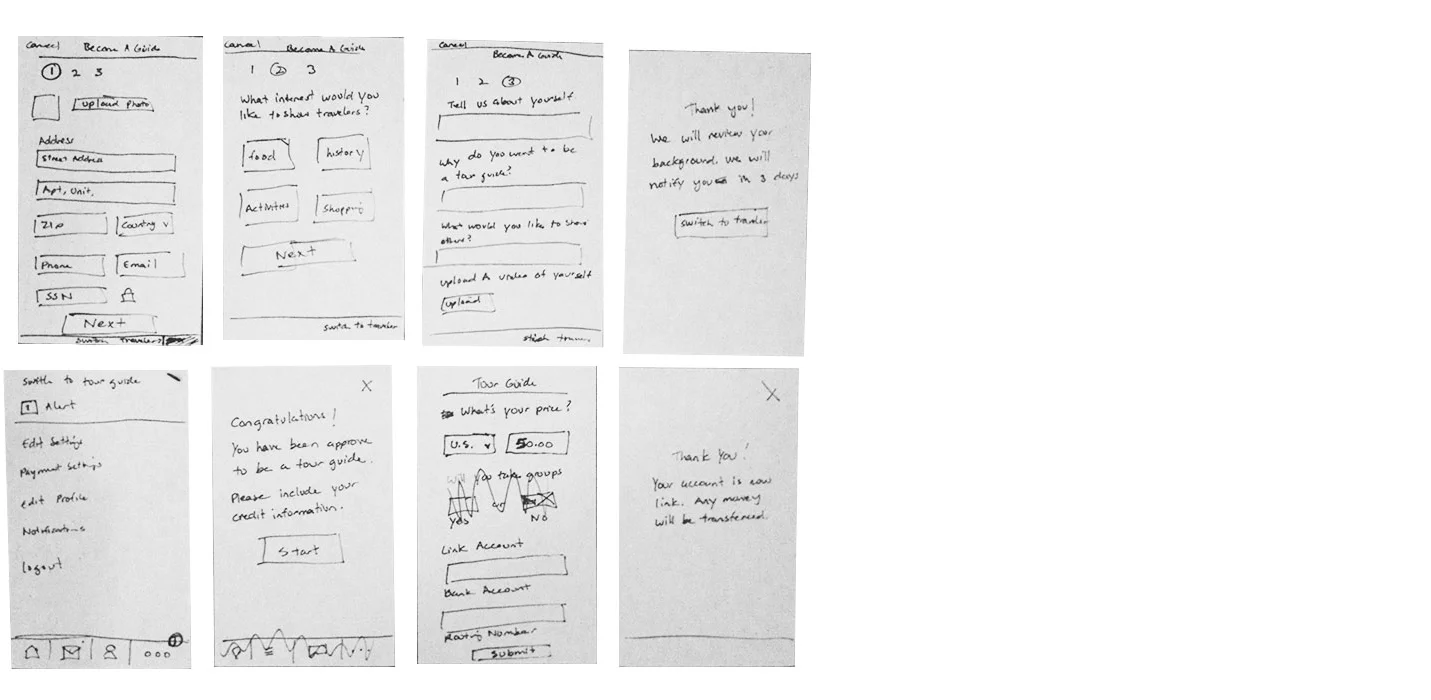 Cancel Become A Guide
1 2 3
Upload Photo
Address
Street Address
Apt, Unit,
Zip Country v
Phone Email
SSN
Next
Switch Travelers
Cancel Become A Guide
1 2 3
What interest would you
like to show travelers?
food history
Activities Shopping
Next
Switch to traveler
Cancel
Become A Guide
1 2 3
Tell us about yourself
Why do you want to be
a tour guide?
What would you like to share
others?
upload A video of yourself
upload
Thank you!
We will review your
background. we will
notify you in 3 days
Switch to traveler
Switch to tour guide
1 Alert
Edit Settings
Payment Settings
Edit Profile
Notifications
logout
X
Congratulations!
You have been approve
to be a tour guide.
Please include your
credit information.
Start
Tour Guide
What's your price?
U.S. v 50.00
will you take groups
Yes or No
Link Account
Bank Account
Routing Number
Submit
X
Thank You!
Your account is now
link. Any money
will be transfered.